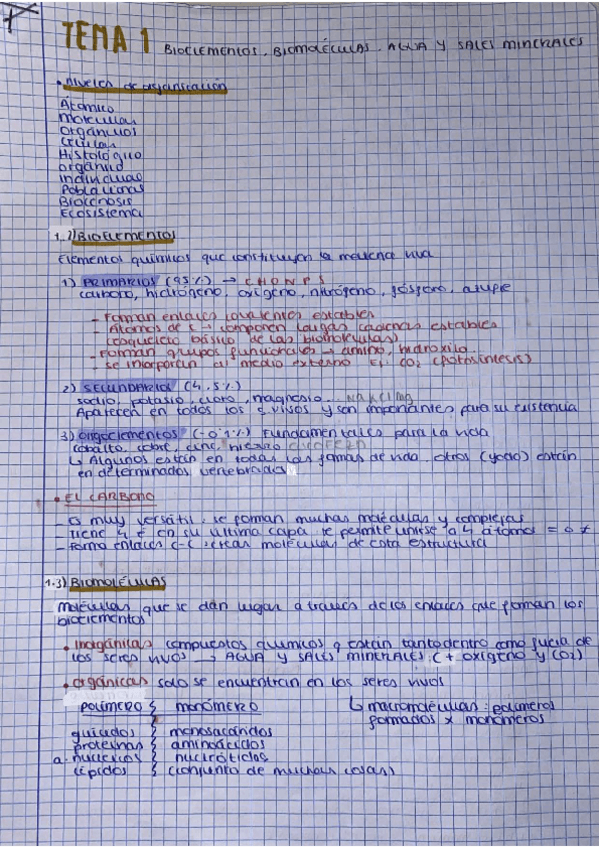 TEMA 1 BIOELEMENTOS, BIOMOLÉCULAS, AGUA Y SALES MINERALES
• Niveles de organización
Atómico
Molecular
Orgánulos
Celular
Histológico
Orgánico
Individuo
Poblaciones
Biocenosis
Ecosistema
1.1) BIOELEMENTOS
Elementos químicos que constituyen la materia viva
1) PRIMARIOS (95%) → C H O N P S
carbono, hidrógeno, oxígeno, nitrógeno, fósforo, azufre
- Forman enlaces covalentes estables
- Átomos de C → componen largas cadenas estables
(esqueleto básico de las biomoléculas)
- Forman grupos funcionales → amino, hidroxilo...
- Se incorporan al medio externo EJ. CO2 (fotosíntesis)
2) SECUNDARIOS (4,5%)
sodio, potasio, cloro, magnesio...
Aparecen en todos los s.vivos y son importantes para su existencia
3) Oligoelementos (-0'1%) Fundamentales para la vida
cobalto, cobre, cinc, hierro
↳ Algunos están en todas las formas de vida, otros (yodo) están
en determinados vertebrados
• EL CARBONO
- Es muy versátil: se forman muchas moléculas y complejas
- Tiene 4 é en su última capa, le permite unirse a 4 átomos = o ≠
- Forma enlaces C-C: crear moléculas de esta estructura
1.3) BIOMOLÉCULAS
Moléculas que se dan lugar a través de los enlaces que forman los
bioelementos
• Inorgánicas compuestos químicos q están tanto dentro como fuera de
los seres vivos → AGUA Y SALES MINERALES: C + oxígeno y (O2)
• Orgánicas solo se encuentran en los seres vivos
POLÍMERO MONÓMERO ↳ macromoléculas: polímeros
formados x monómeros
glúcidos monosacáridos
proteínas aminoácidos
a. nucleicos nucleótidos
lípidos (conjunto de muchas cosas)